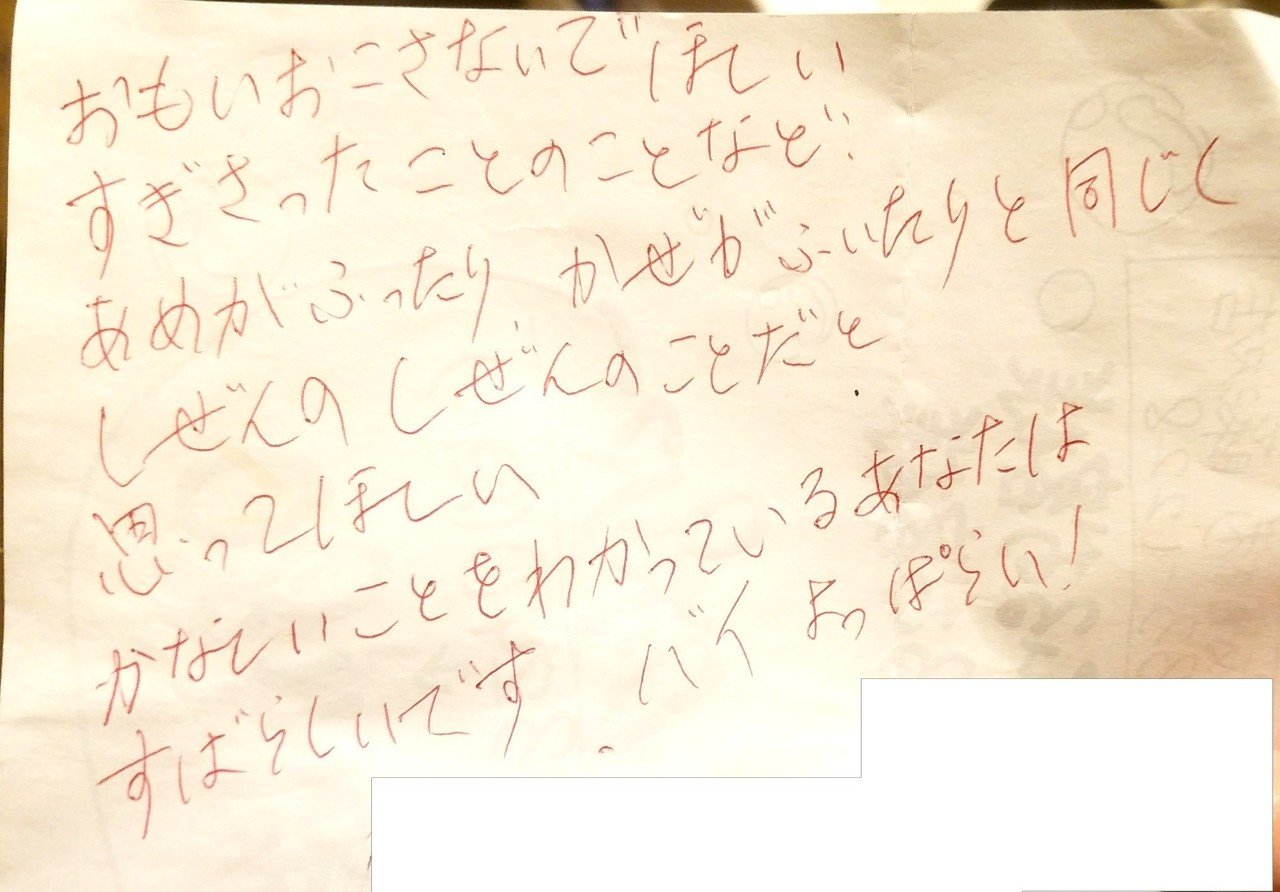 おもいおこさないでほしい
すぎさったことのことなど:
あめがふったり かぜがふいたりと同じく
しぜんのしぜんのことだと
思ってほしい
かなしいことをわかっているあなたは
すばらしいです. バイ よっぱらい!